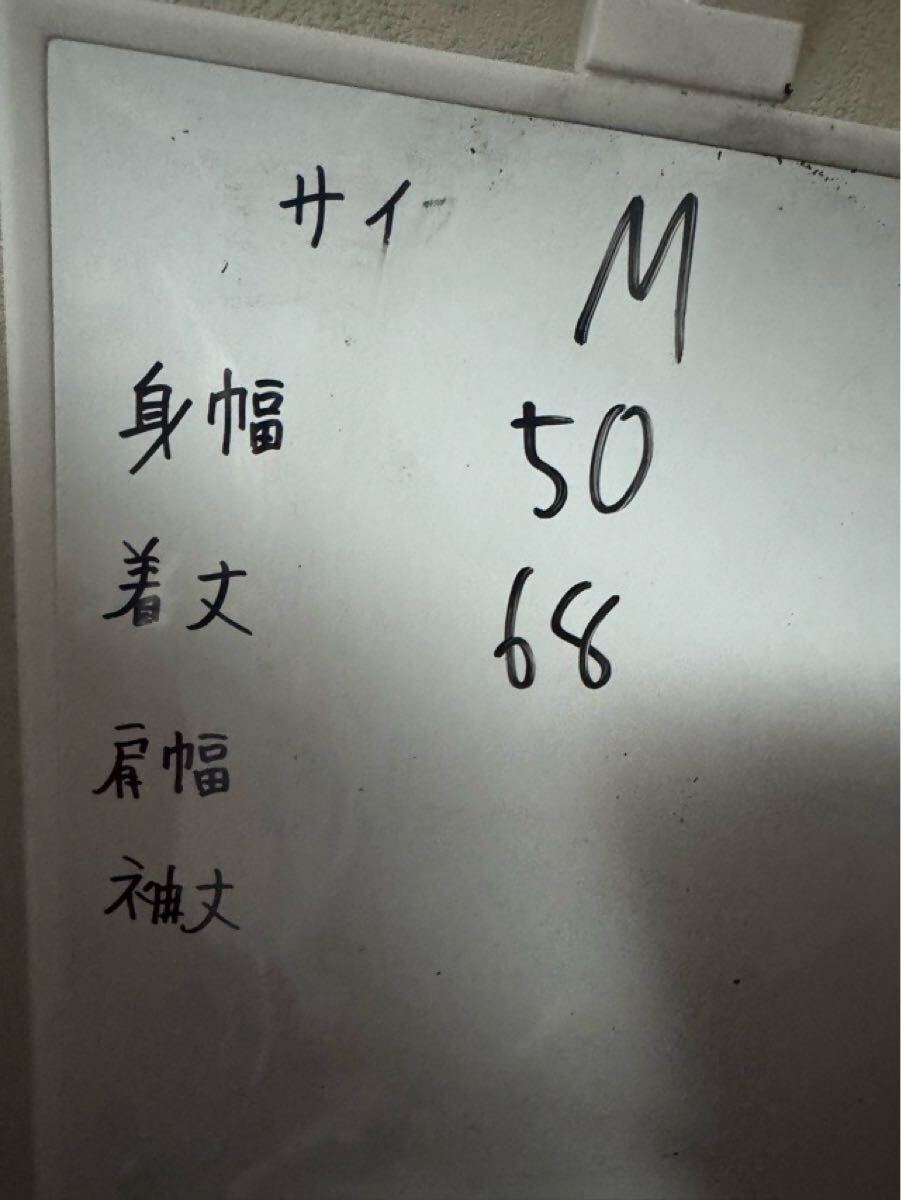 サイ M
身幅 50
着丈 68
肩幅
袖丈